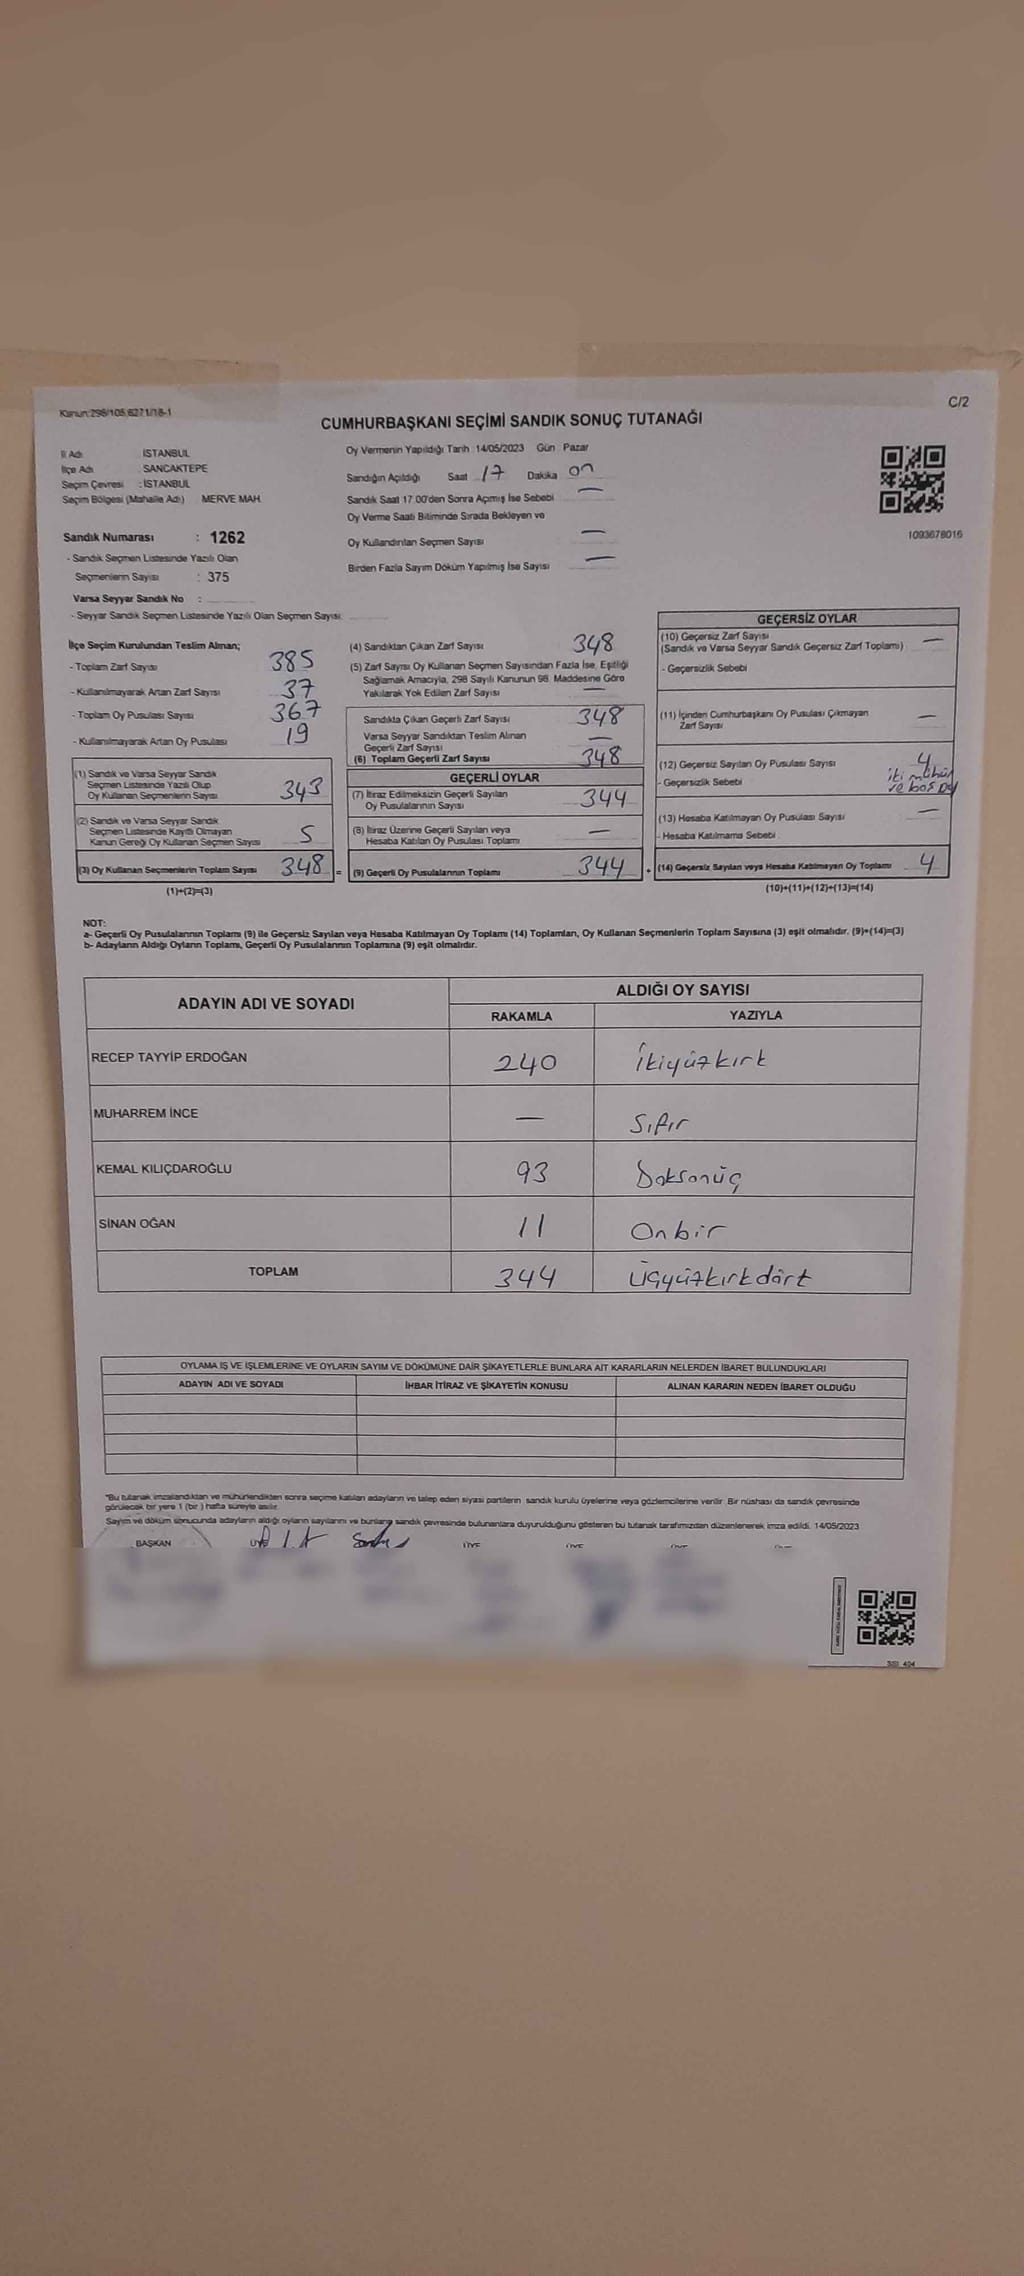 Kanun:298/105,6271/18-1
C/2
CUMHURBAŞKANI SEÇİMİ SANDIK SONUÇ TUTANAĞI
İl Adı İSTANBUL
İlçe Adı : SANCAKTEPE
Seçim Çevresi : İSTANBUL
Seçim Bölgesi (Mahalle Adı) MERVE MAH.
Sandık Numarası : 1262
- Sandık Seçmen Listesinde Yazılı Olan
Seçmenlerin Sayısı : 375
Varsa Seyyar Sandık No :
- Seyyar Sandık Seçmen Listesinde Yazılı Olan Seçmen Sayısı:
Oy Vermenin Yapıldığı Tarih : 14/05/2023 Gün : Pazar
Sandığın Açıldığı Saat 17 Dakika on
Sandık Saat 17.00'den Sonra Açımış İse Sebebi —
Oy Verme Saati Bitiminde Sırada Bekleyen ve
Oy Kullandırılan Seçmen Sayısı —
Birden Fazla Sayım Döküm Yapılmış İse Sayısı —
1093678016
İlçe Seçim Kurulundan Teslim Alınan;
- Toplam Zarf Sayısı 385
- Kullanılmayarak Artan Zarf Sayısı 37
- Toplam Oy Pusulası Sayısı 367
- Kullanılmayarak Artan Oy Pusulası 19
(1) Sandık ve Varsa Seyyar Sandık
Seçmen Listesinde Yazılı Olup
Oy Kullanan Seçmenlerin Sayısı 343
(2) Sandık ve Varsa Seyyar Sandık
Seçmen Listesinde Kayıtlı Olmayan
Kanun Gereği Oy Kullanan Seçmen Sayısı 5
(3) Oy Kullanan Seçmenlerin Toplam Sayısı 348 =
(1)+(2)=(3)
(4) Sandıktan Çıkan Zarf Sayısı 348
(5) Zarf Sayısı Oy Kullanan Seçmen Sayısından Fazla İse, Eşitliği
Sağlamak Amacıyla, 298 Sayılı Kanunun 98. Maddesine Göre
Yakılarak Yok Edilen Zarf Sayısı —
Sandıkta Çıkan Geçerli Zarf Sayısı 348
Varsa Seyyar Sandıktan Teslim Alınan
Geçerli Zarf Sayısı —
(6) Toplam Geçerli Zarf Sayısı 348
GEÇERLİ OYLAR
(7) İtiraz Edilmeksizin Geçerli Sayılan
Oy Pusulalarının Sayısı 344
(8) İtiraz Üzerine Geçerli Sayılan veya
Hesaba Katılan Oy Pusulası Toplamı —
(9) Geçerli Oy Pusulalarının Toplamı 344 +
GEÇERSİZ OYLAR
(10) Geçersiz Zarf Sayısı —
(Sandık ve Varsa Seyyar Sandık Geçersiz Zarf Toplamı)
- Geçersizlik Sebebi
(11) İçinden Cumhurbaşkanı Oy Pusulası Çıkmayan
Zarf Sayısı —
(12) Geçersiz Sayılan Oy Pusulası Sayısı 4
- Geçersizlik Sebebi iki mühür
ve boş
(13) Hesaba Katılmayan Oy Pusulası Sayısı —
- Hesaba Katılmama Sebebi :
(14) Geçersiz Sayılan veya Hesaba Katılmayan Oy Toplamı 4
(10)+(11)+(12)+(13)=(14)
NOT:
a- Geçerli Oy Pusulalarının Toplamı (9) ile Geçersiz Sayılan veya Hesaba Katılmayan Oy Toplamı (14) Toplamları, Oy Kullanan Seçmenlerin Toplam Sayısına (3) eşit olmalıdır. (9)+(14)=(3)
b- Adayların Aldığı Oyların Toplamı, Geçerli Oy Pusulalarının Toplamına (9) eşit olmalıdır.
ADAYIN ADI VE SOYADI ALDIĞI OY SAYISI
RAKAMLA YAZIYLA
RECEP TAYYİP ERDOĞAN 240 İkiyüzkırk
MUHARREM İNCE — Sıfır
KEMAL KILIÇDAROĞLU 93 Doksanüç
SİNAN OĞAN 11 Onbir
TOPLAM 344 Üçyüzkırkdört
OYLAMA İŞ VE İŞLEMLERİNE VE OYLARIN SAYIM VE DÖKÜMÜNE DAİR ŞİKAYETLERLE BUNLARA AİT KARARLARIN NELERDEN İBARET BULUNDUKLARI
ADAYIN ADI VE SOYADI İHBAR İTİRAZ VE ŞİKAYETİN KONUSU ALINAN KARARIN NEDEN İBARET OLDUĞU
"Bu tutanak imzalandıktan ve mühürlendikten sonra seçime katılan adayların ve talep eden siyasi partilerin sandık kurulu üyelerine veya gözlemcilerine verilir. Bir nüshası da sandık çevresinde
görülecek bir yere 1 (bir ) hafta süreyle asılır.
Sayım ve döküm sonucunda adayların aldığı oyların sayılarını ve bunların sandık çevresinde bulunanlara duyurulduğunu gösteren bu tutanak tarafımızdan düzenlenerek imza edildi. 14/05/2023
BAŞKAN ÜYE ÜYE ÜYE ÜYE ÜYE
SSI_404